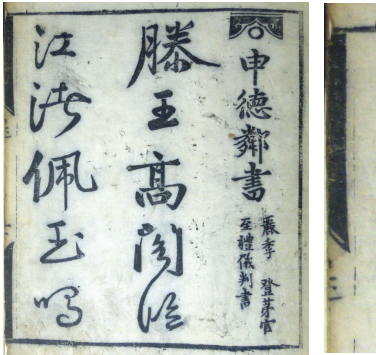 申德鄰書
麗季 登第官
至禮儀判書
滕王高閣臨
江渚佩玉鳴